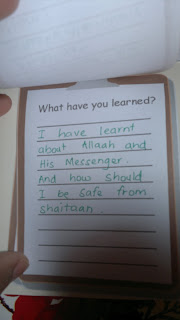 What have you learned?
I have learnt
about Allaah and
His Messenger.
And how should
I be safe from
Shaitaan.